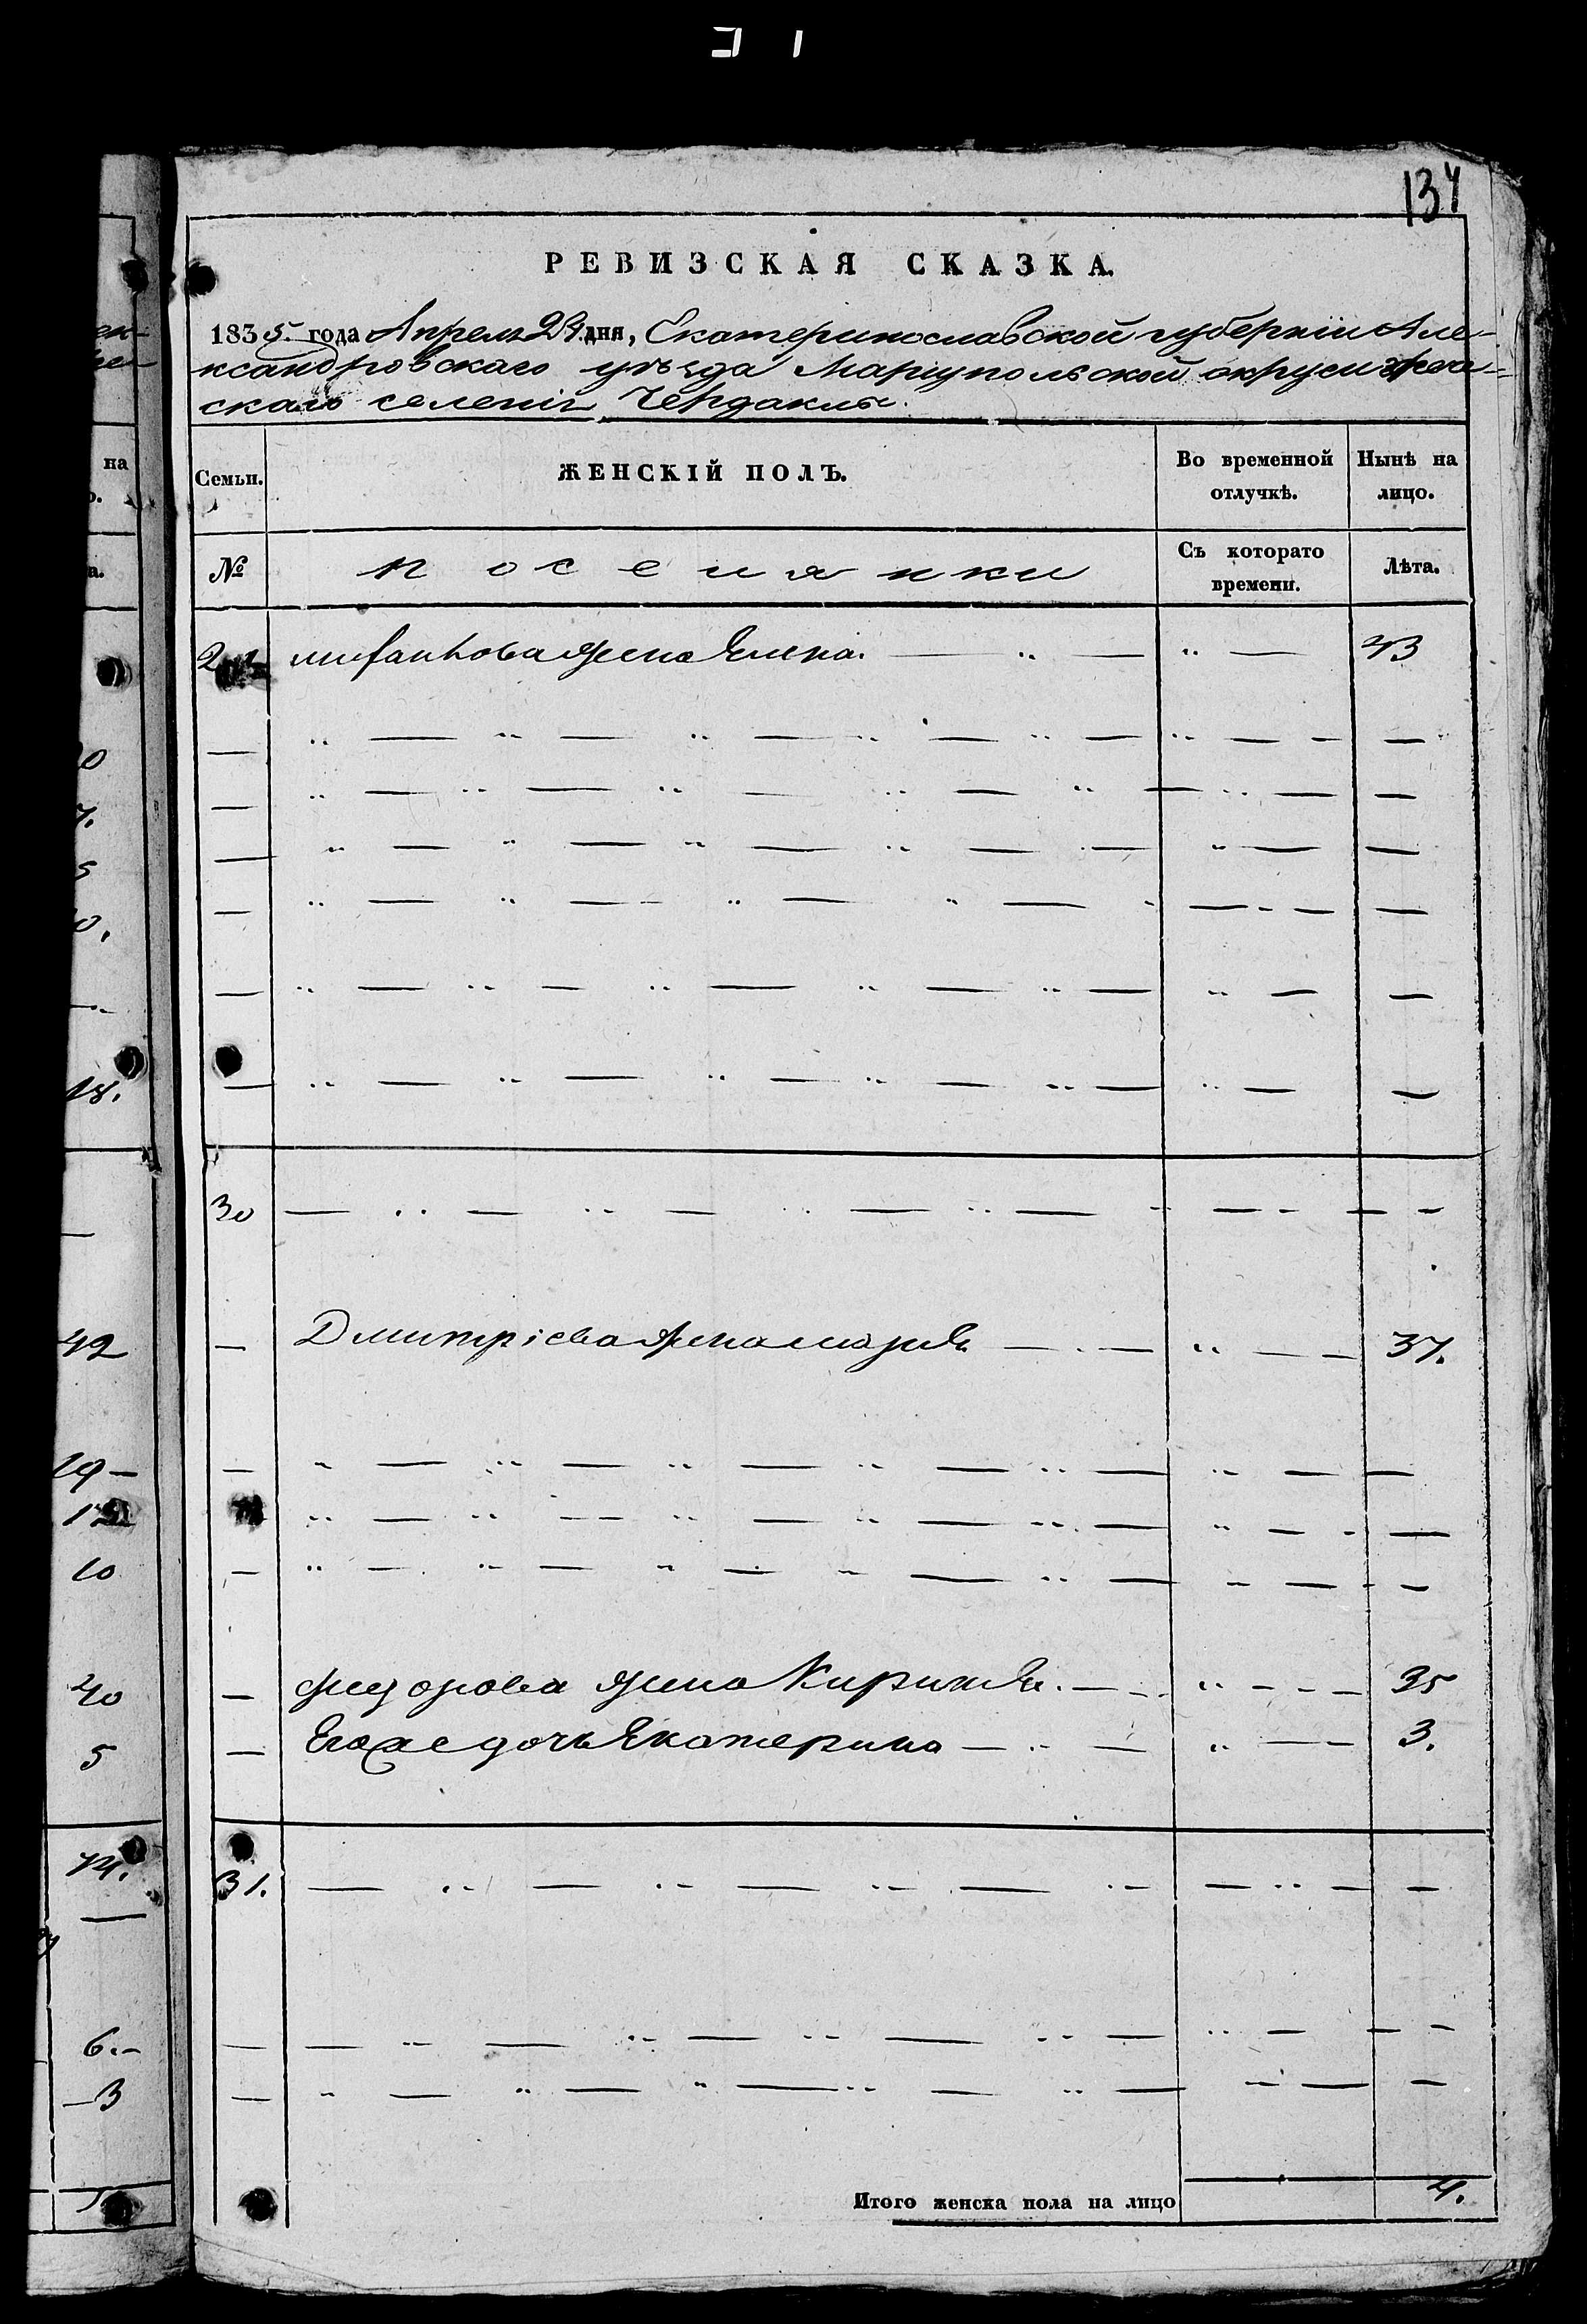 134
РЕВИЗСКАЯ СКАЗКА.
1835 года Апреля 24 дня, Екатеринославской губернiи Але-
ксандровскаго уѣзда Марiупольской округи грече-
скаго селенiя Чердаклы.
Семьи.
ЖЕНСКIЙ ПОЛЪ.
Во временной отлучкѣ.
Нынѣ на лицо.
№
поселянки
Съ которато времени.
Лѣта.
жена Елена. 43
30
Дмитрiева жена марiя 37.
Федорова жена Кирикiя. 35
Егоже дочь Екатерина 3.
31.
Итого женска пола на лицо 4.
на
а.
18.
42
19
10
40
5
14.
6.
3